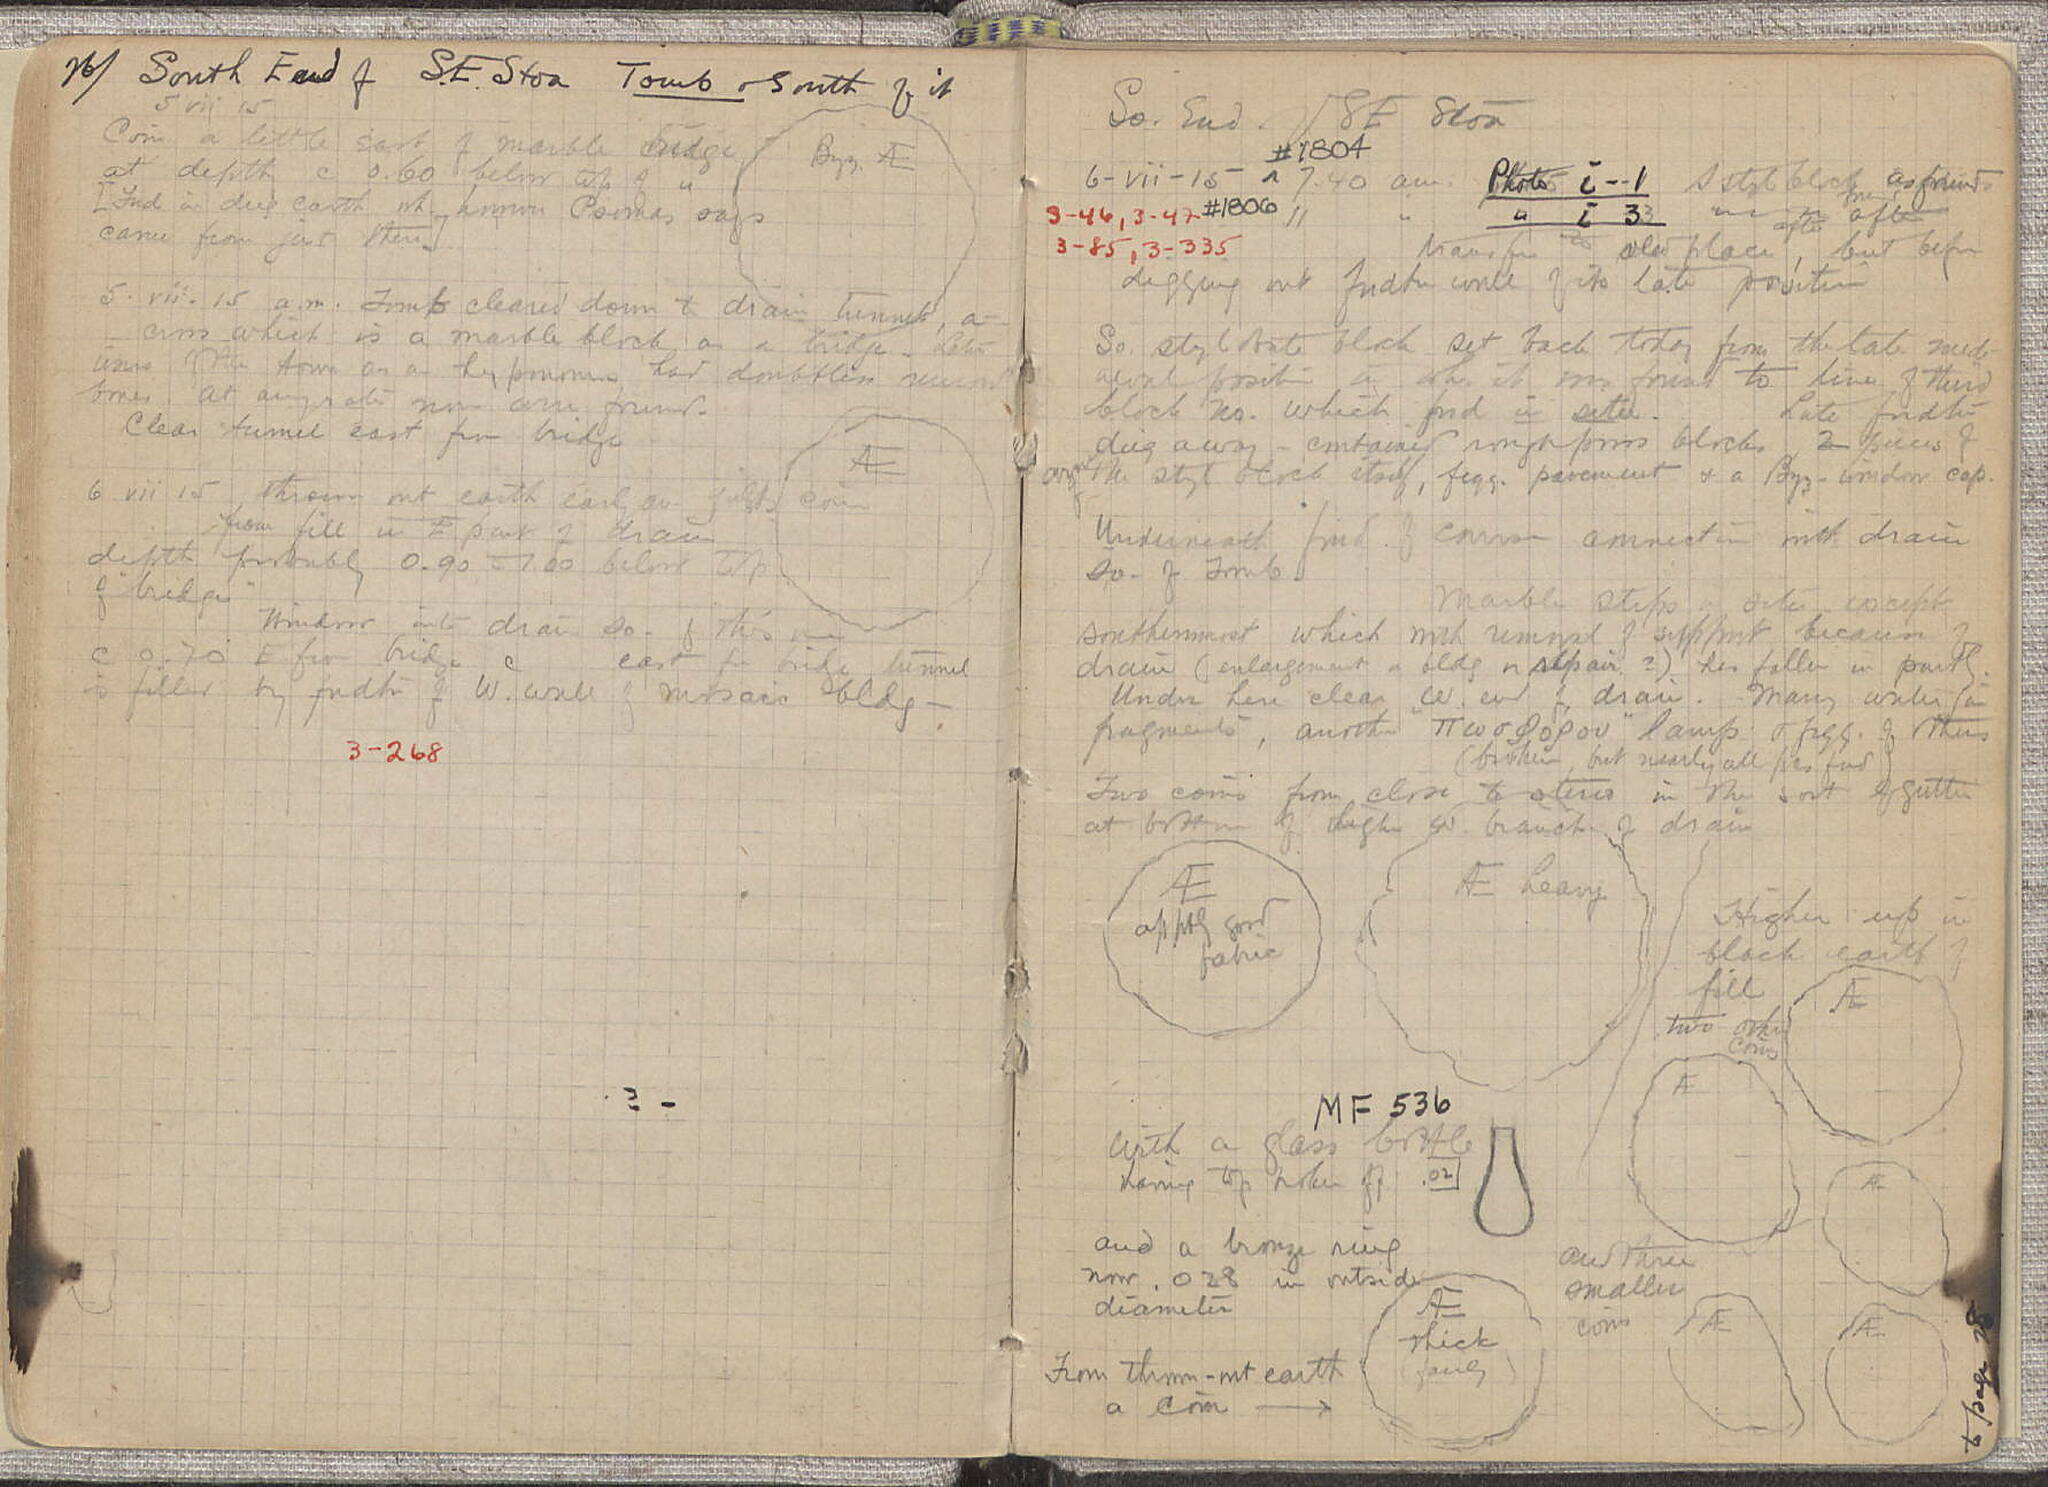 26/ South End of S.E. Stoa Tomb & South of it
5 vii 15
Coin a little east of marble bridge
at depth c 0.60 below top of "
[Fnd in dug earth wh. Psomas says
came from just there]
Byz. Æ
5. vii. 15 a.m. Tomb cleared down to drain tunnel, a-
cross which is a marble block as a bridge. Later
users of the had doubtless
bones at any rate none were found.
Clear tunnel east from bridge
Æ
6 vii 15 thrown out earth early am yields coin
from fill in E part of drain
depth probably 0.90 – 1.00 below top
of "bridge"
Window into drain so. of this one
c 0.70 E from bridge c east from bridge tunnel
is filled by fndtn of W. wall of mosaic bldg –
3-268
So. End of SE Stoa
#1804
6-vii-15 7.40 am. Photo i-1 S styl block as found
3-46, 3-47 #1806 " " " i 3 after
3-85, 3-335
transfer to old place, but before
digging out fndtn wall of its late position
So. stylobate block set back today from the late medi-
aeval position in wh. it was found to line of third
block no. which fnd in situ. Late fndtn
dug away – contained rough poros blocks, 2 pieces of
the styl block itself, fragg. pavement & a Byz. window cap.
Underneath find of connection with drain
so. of Tomb.
Marble steps in situ except
southernmost which with removal of support because of
drain (enlargement or bldg or repair?) has fallen in partly.
Under here clear W. end of drain. Many water jar
fragments, another "πωσφορου" lamp & fragg. of others
(broken, but nearly all pcs fnd)
Two coins from close to steres in the sort of gutter
at bottom of higher W. branch of drain
Æ
apptly good
fabric
Æ heavy
Higher up in
black earth of
fill
two other
coins
Æ
Æ
MF 536
With a glass bottle
having top broken off .02
Æ
and a bronze ring
now .028 in outside
diameter
and three
smaller
coins
Æ
thick
(fairly)
Æ
Æ
From thrown-out earth
a coin →
to page 28